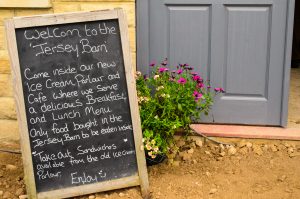 Welcom to the
Jersey Barn
Come inside our new
Ice Cream Parlour and
Cafe Where we serve
a delicious Breakfast
and Lunch Menu
Only food bought in the
Jersey Barn to be eaten inside
Take Out Sandwiches
available from the old Ice Cream
Parlour.
Enjoy